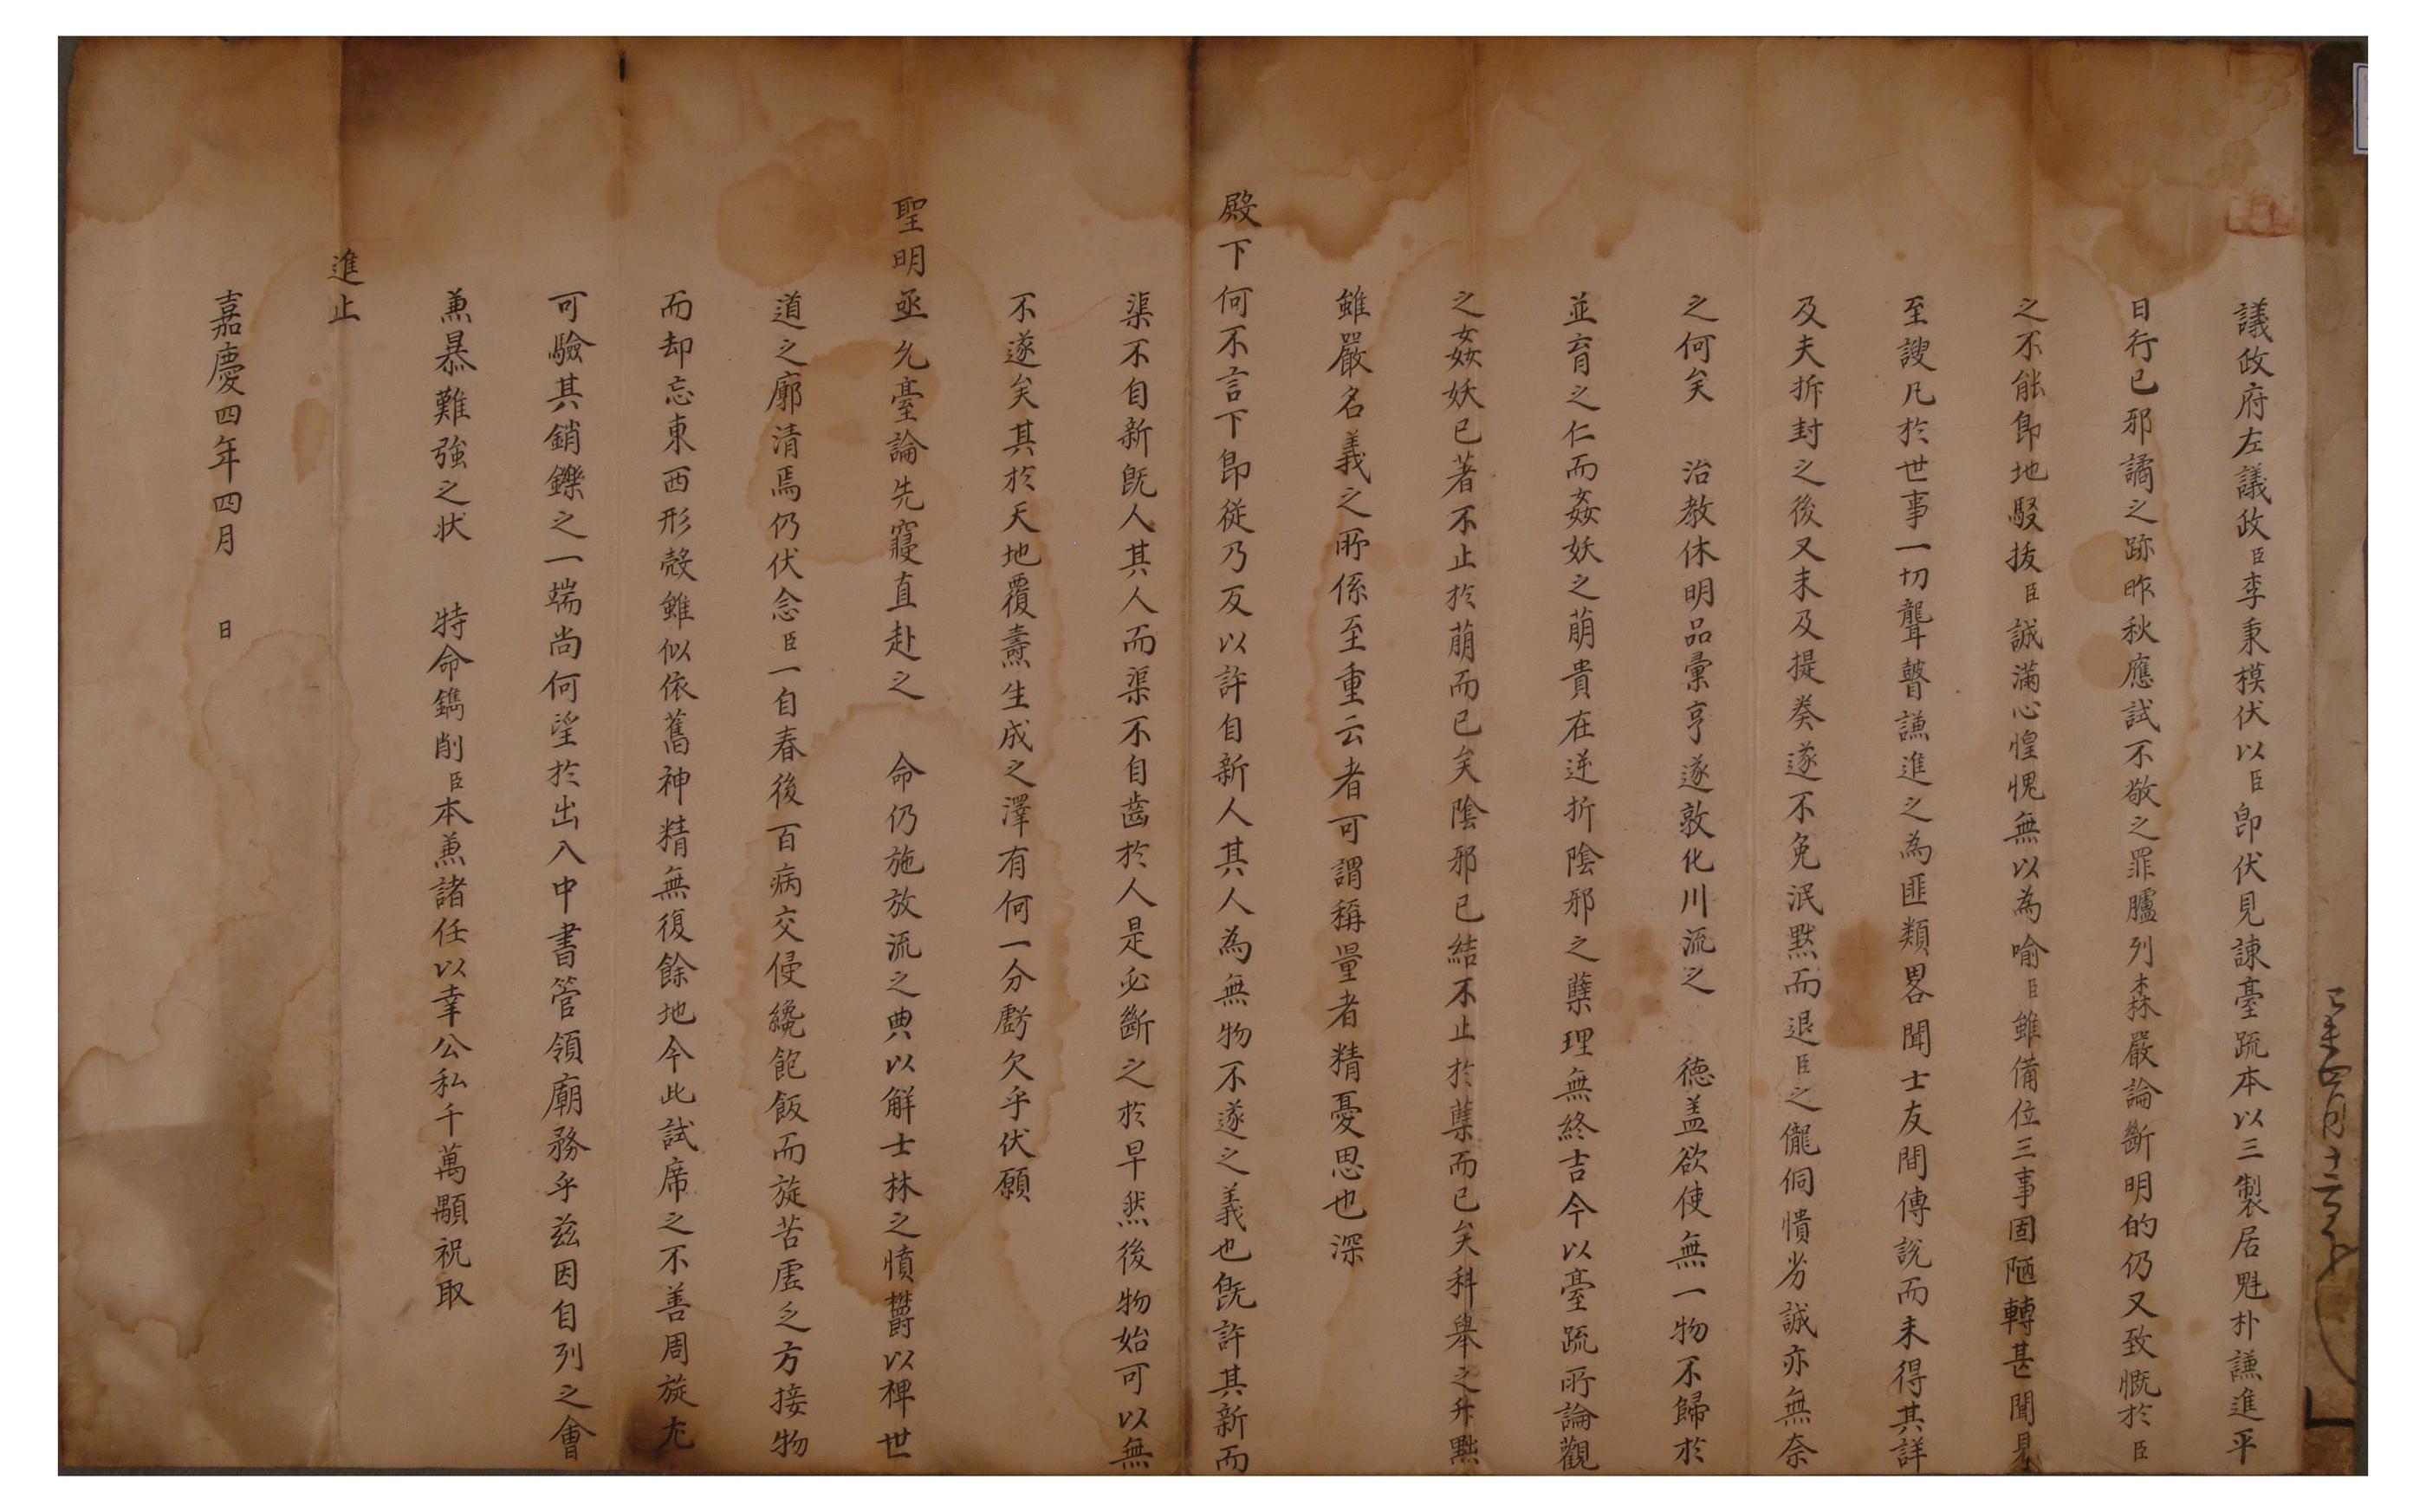 議政府左議政臣李秉模伏以臣卽伏見諫臺疏本以三製居魁朴謙進平
日行已邪譎之跡昨秋應試不敬之罪臚列森嚴論斷明的仍又致慨於臣
之不能卽地駁拔臣誠滿心惶愧無以為喻臣雖備位三事固陋轉甚聞見
至謏凡於世事一切聾瞽謙進之為匪類畧聞士友間傳說而未得其詳
及夫拆封之後又未及提奏遂不免泯默而退臣之儱侗憒劣誠亦無奈
之何矣 治敎休明品彙亨遂敦化川流之 德盖欲使無一物不歸於
並育之仁而姦妖之萠貴在逆折陰邪之蘖理無終吉今以臺疏所論觀
之姦妖已著不止於萠而已矣陰邪已結不止於蘖而已矣科擧之升黜
雖嚴名義之所係至重云者可謂稱量者精憂思也深
殿下何不言下卽從乃反以許自新人其人為無物不遂之義也旣許其新而
渠不自新旣人其人而渠不自齒於人是必斷之於早然後物始可以無
不遂矣其於天地覆燾生成之澤有何一分虧欠乎伏願
聖明亟允臺論先寢直赴之 命仍施放流之典以解士林之憤欝以裨世
道之廓清焉仍伏念臣一自春後百病交侵纔飽飯而旋苦虛乏方接物
而却忘東西形殼雖似依舊神精無復餘地今此試席之不善周旋尤
可驗其銷鑠之一端尚何望於出入中書管領廟務乎玆因自列之會
兼暴難強之状 特命鐫削臣本兼諸任以幸公私千萬顒祝取
進止
嘉慶四年四月 日